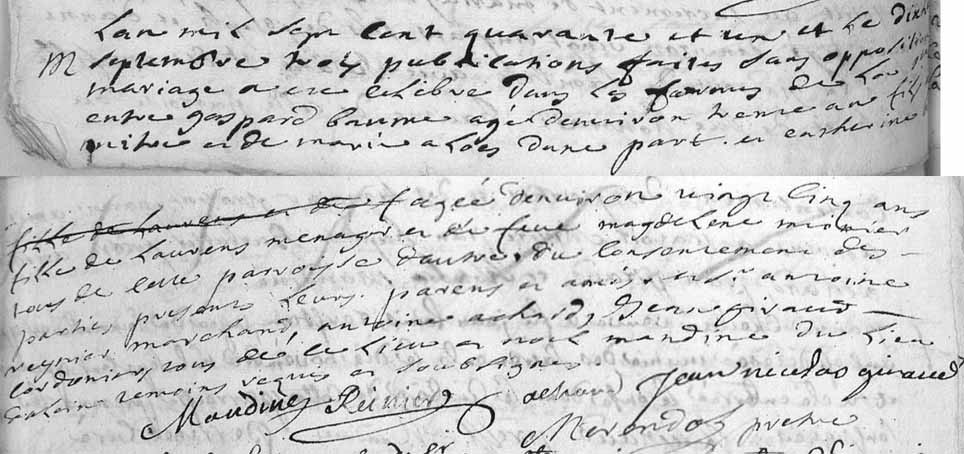 Lan mil sept cent quarante et un et le dix
M septembre trois publications faites sans opposition
mariage a ete celebré dans les formes de la
entre gaspard baume agé denviron trente an fils
mitre et de marie aloes dune part. et catherine
fille de Laurens et de f agée denviron vingt cinq ans
fille de Laurens menager et de feue magdelene
tous de cette parroisse dautre, du consentement des
parties presents leurs parens et amis et sr antoine
reynier marchand, antoine achard, Jean giraud
cordoniers tous de ce lieu et noel mandine du lieu
temoins requis et soubsignés.
Mandine Reinier achard Jean nicolas giraud
pretre